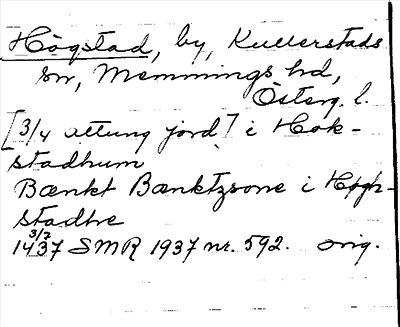 Högstad, by, Kullerstads
sn, Memmings hd,
Österg. l.
[3/4 attung jord] i Hok-
stadhum
Bænkt Bænktzsone i Høgh-
stadhe
3/7
1437 SMR 1937 nr. 592. orig.